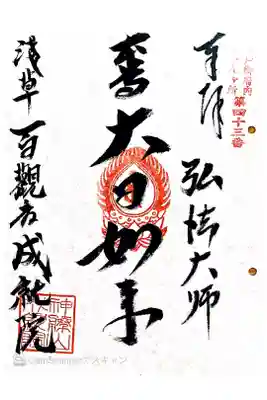 第四十三番
奉拝 弘法大師
本尊 大日如来
浅草 百観音成就院
CamScannerでスキャン